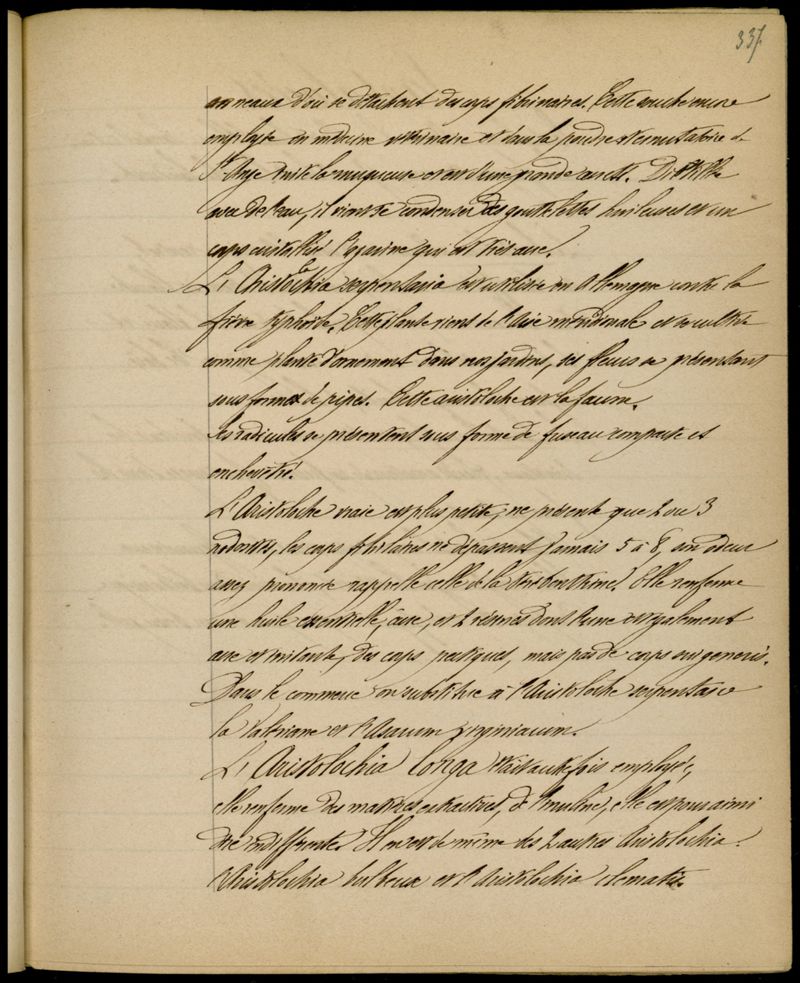 337
anneaux d'où se détachent des corps fibrinaires. Cette souche encore
employée en médecine vétérinaire et dans la poudre sternutatoire de
St Ange irrite la muqueuse et est d'une grande âcreté. Distillée
avec de l'eau, il vient se condenser des gouttelettes huileuses et un
corps cristallisé l'azarine qui est très âcre.
L'Aristolochia serpentaria est utilisée en Allemagne contre la
fièvre typhoïde. Cette plante vient de l'Asie méridionale et se cultive
comme plante d'ornement dans nos jardins, ses fleurs se présentant
sous forme de pipes. Cette aristoloche est la fausse.
Les radicules se présentent sous forme de fuseau compacte et
enchevêtré.
L'Aristoloche vraie est plus petite, ne présente que 2 ou 3
, les corps fibrillaires ne dépassent jamais 5 à 8, son odeur
assez prononcée rappelle celle de la térébenthine. Elle renferme
une huile essentielle, âcre, et 2 résines dont l'une est également
âcre et irritante, des corps pectiques, mais pas de corps sui generis.
Dans le commerce on substitue à l'Aristoloche serpentaire
la Valériane et l'Asarum virginicum.
L'Aristolochia longa était autrefois employée,
elle renferme des matières extractives, de l'inuline, elle est pour ainsi
dire indifférente. Il en est de même des 2 autres Aristolochia.
L'Aristolochia bulbeux et l'Aristolochia clematite